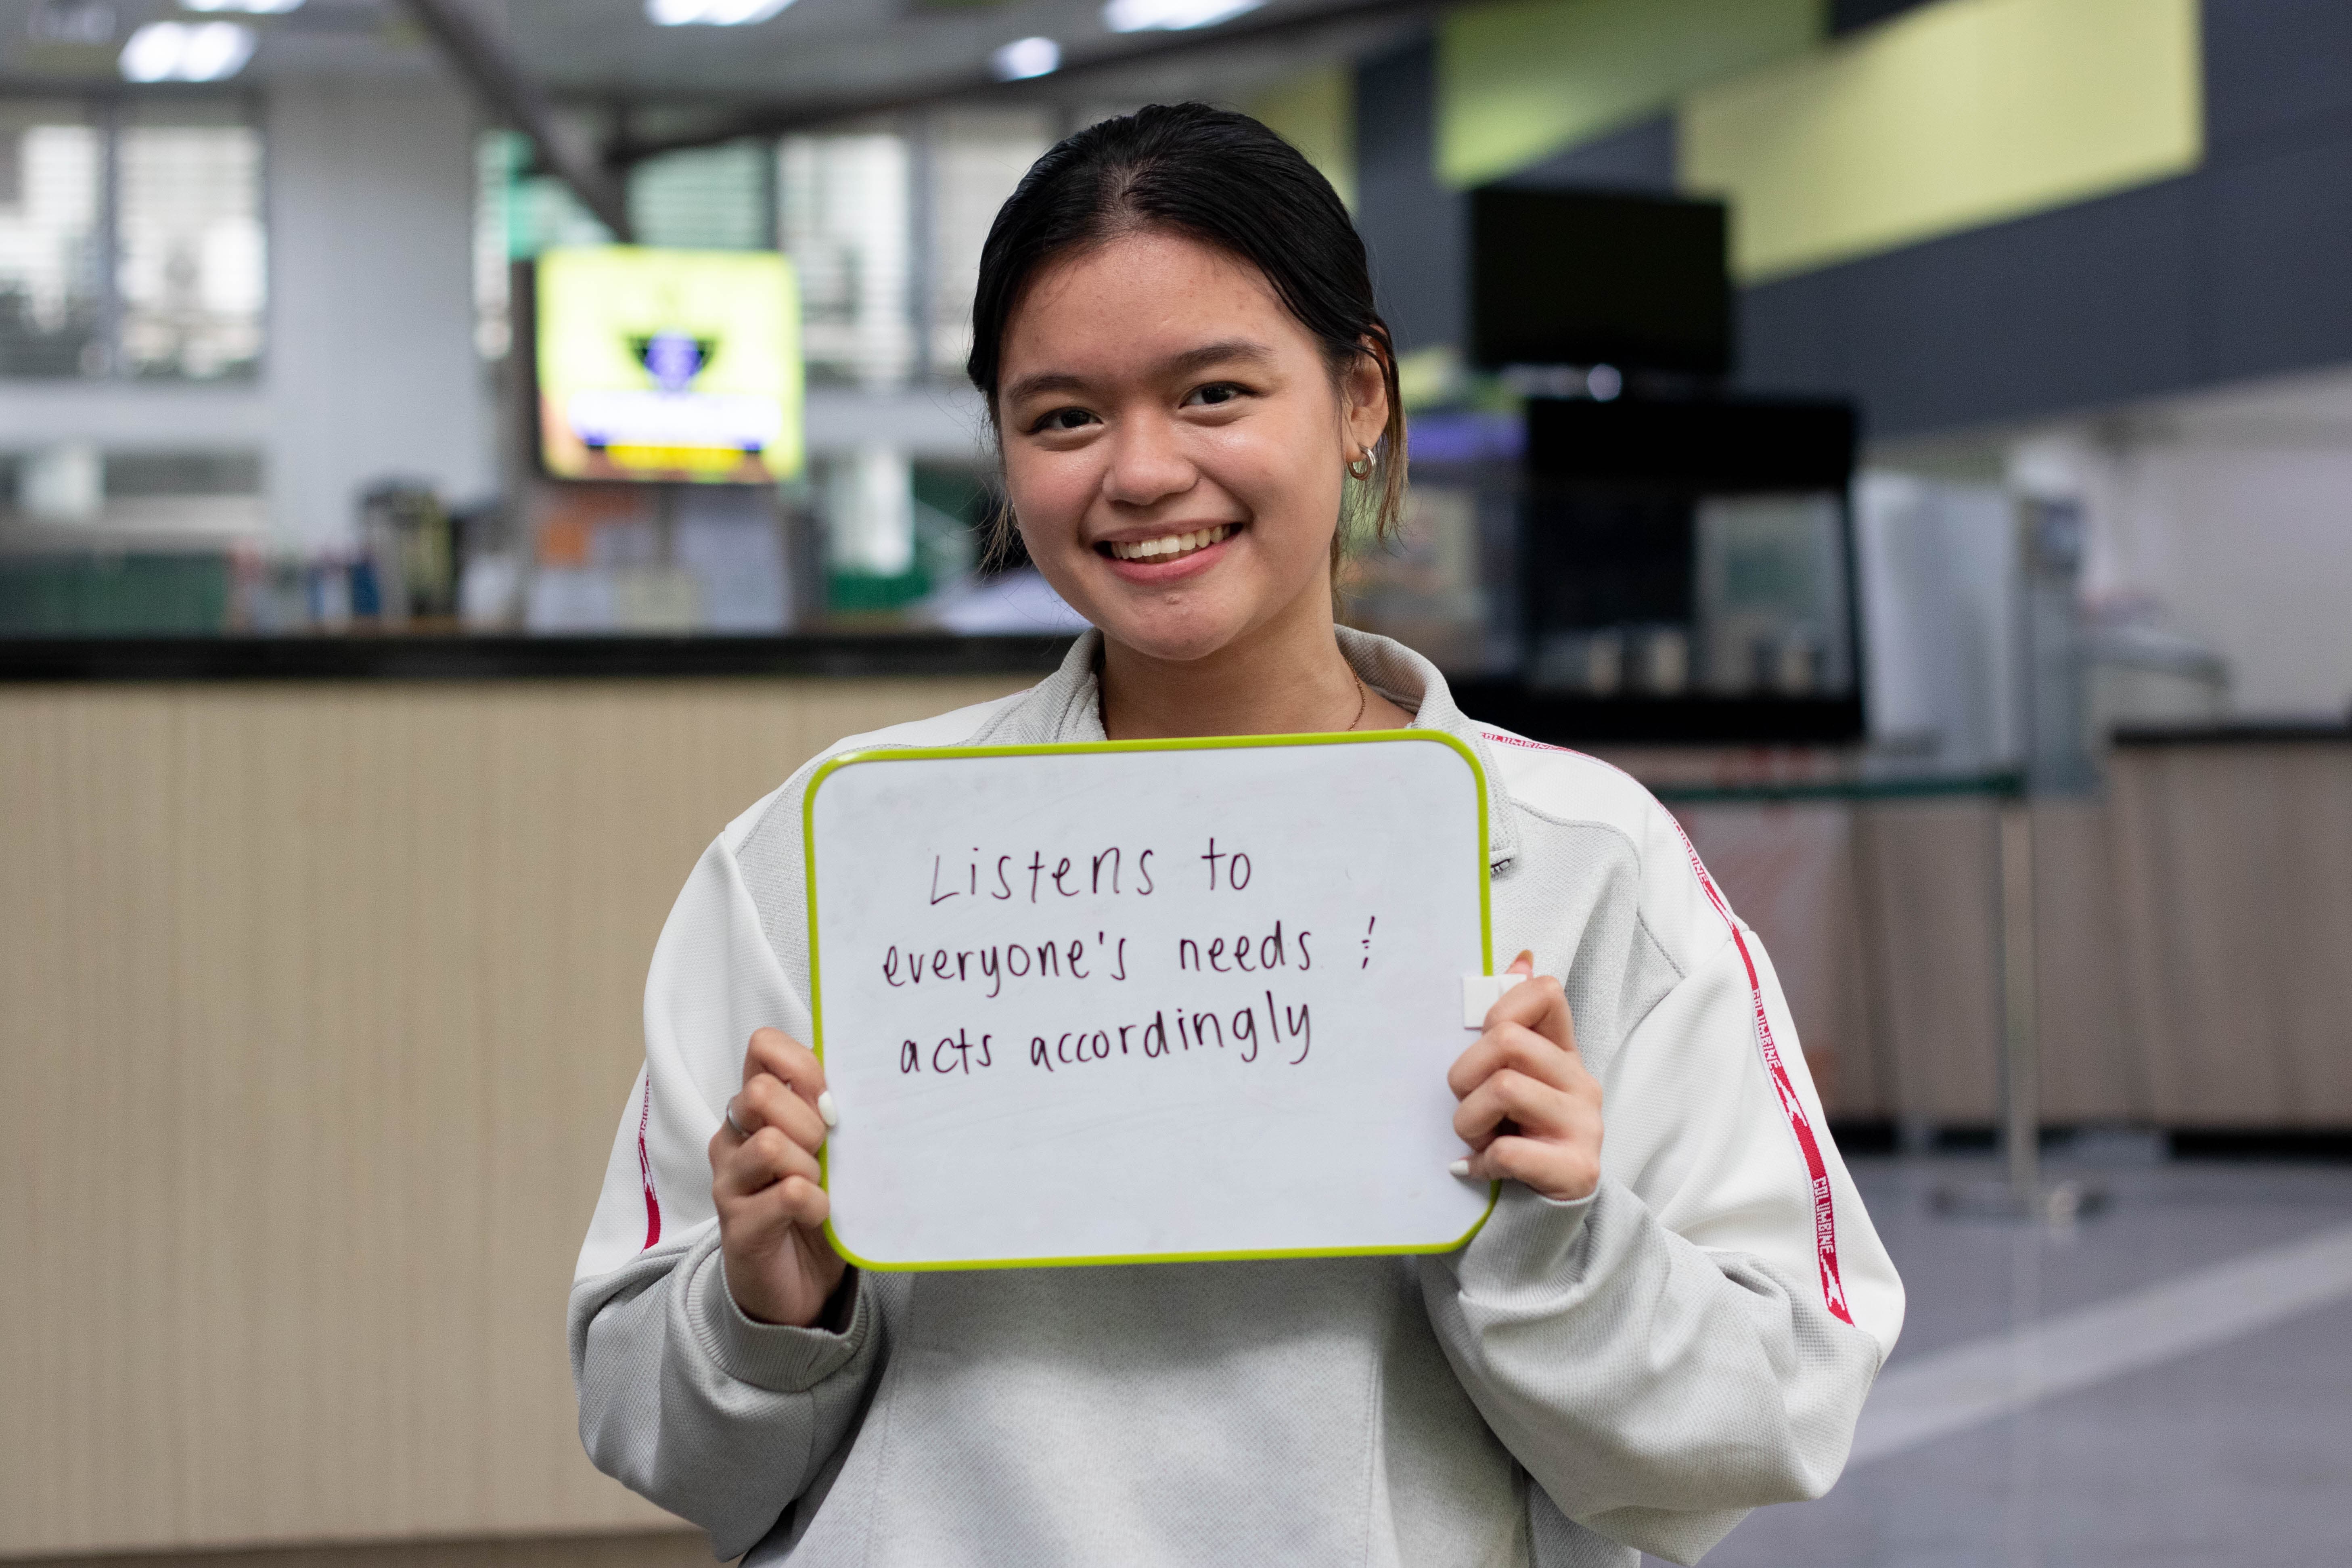 Listens to
everyone's needs &
acts accordingly
COLUMBINE
COLUMBINE
COLUMBINE
COLUMBINE